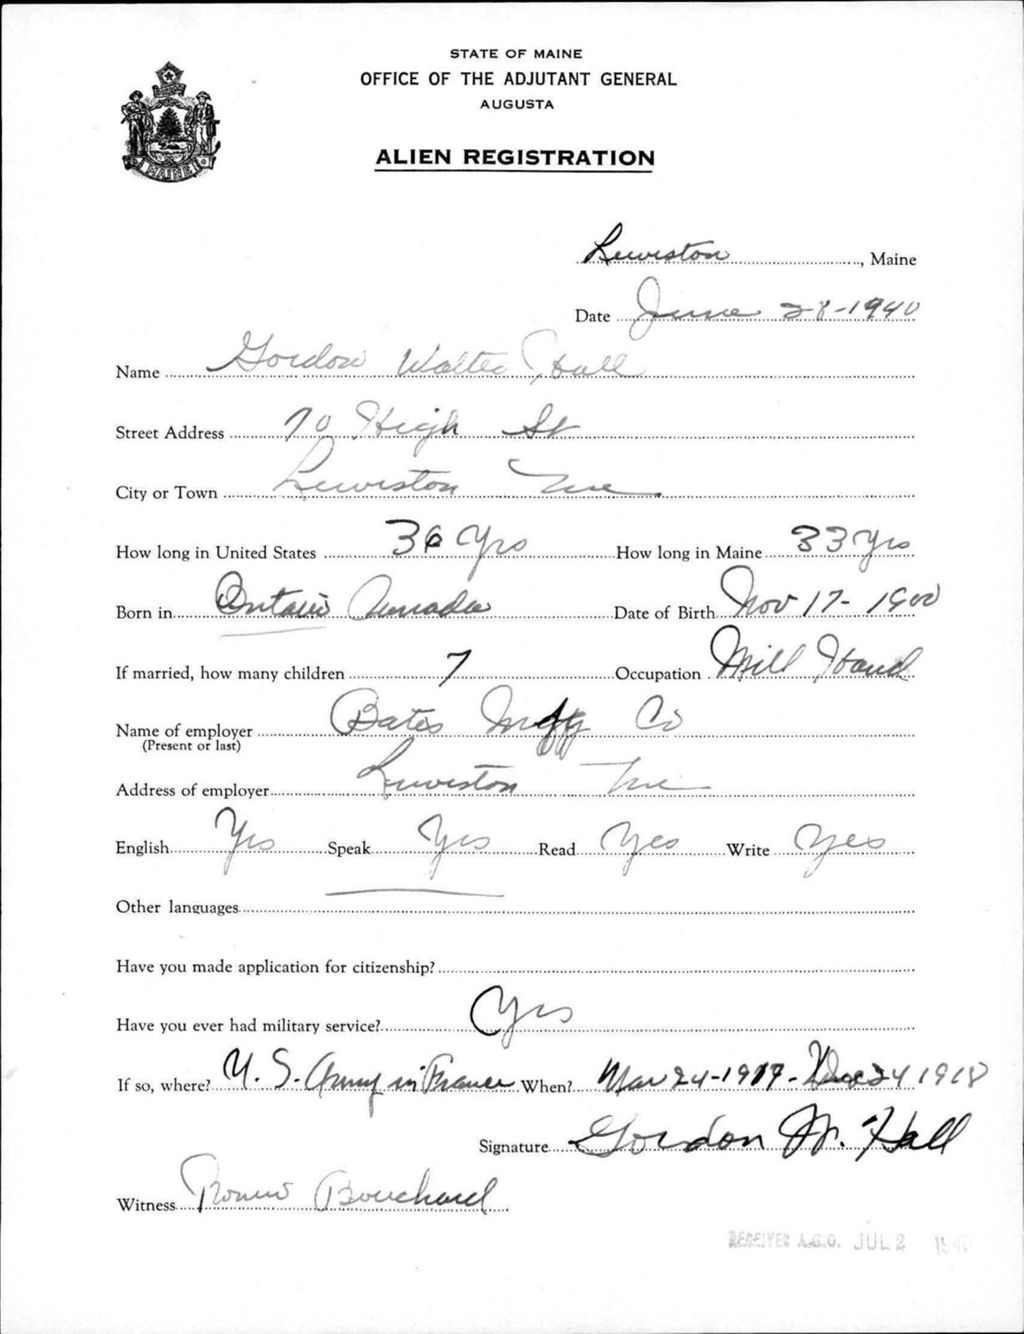 STATE OF MAINE
OFFICE OF THE ADJUTANT GENERAL
AUGUSTA
ALIEN REGISTRATION
MAINE
Lewiston, Maine
Date June 28-1940
Name Gordon Walter Hall
Street Address 70 High St
City or Town Lewiston Me
How long in United States 36 Yrs How long in Maine 33 Yrs
Born in Ontario Canada Date of Birth Nov 17- 1900
If married, how many children 7 Occupation Mill Hand
Name of employer Bates Mfg Co
(Present or last)
Address of employer Lewiston Me
English Yes Speak Yes Read Yes Write Yes
Other languages
Have you made application for citizenship?
Have you ever had military service? Yes
If so, where? U. S. Army in France When? Mar 24-1917- Dec 24 1918
Signature Gordon W. Hall
Witness Romeo Bouchard
RECEIVED A.G.O. JUL 2 1940